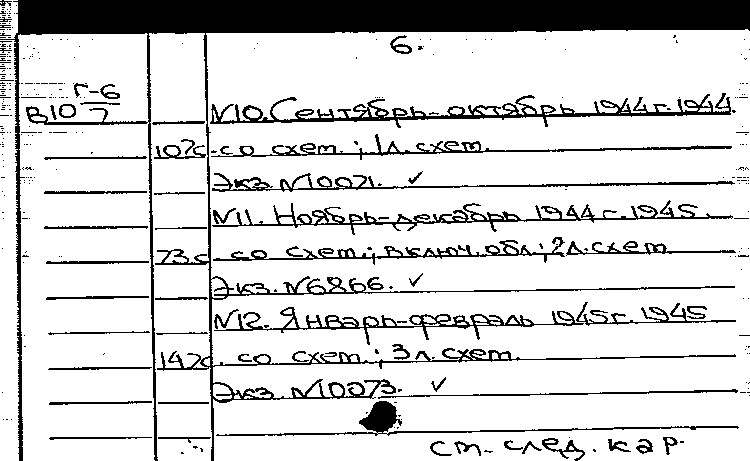 6.
Г-6
В10 7
N10. Сентябрь-октябрь 1944г. 1944.
107с. со схем.; 1л. схем.
Экз. N10071. ✓
N11. Ноябрь-декабрь 1944г. 1945.
73с. со схем.; включ. обл.; 2л. схем
Экз. N6866. ✓
N12. Январь-февраль 1945г. 1945
147с. со схем.; 3л. схем.
Экз. N10073. ✓
см. след. кар.